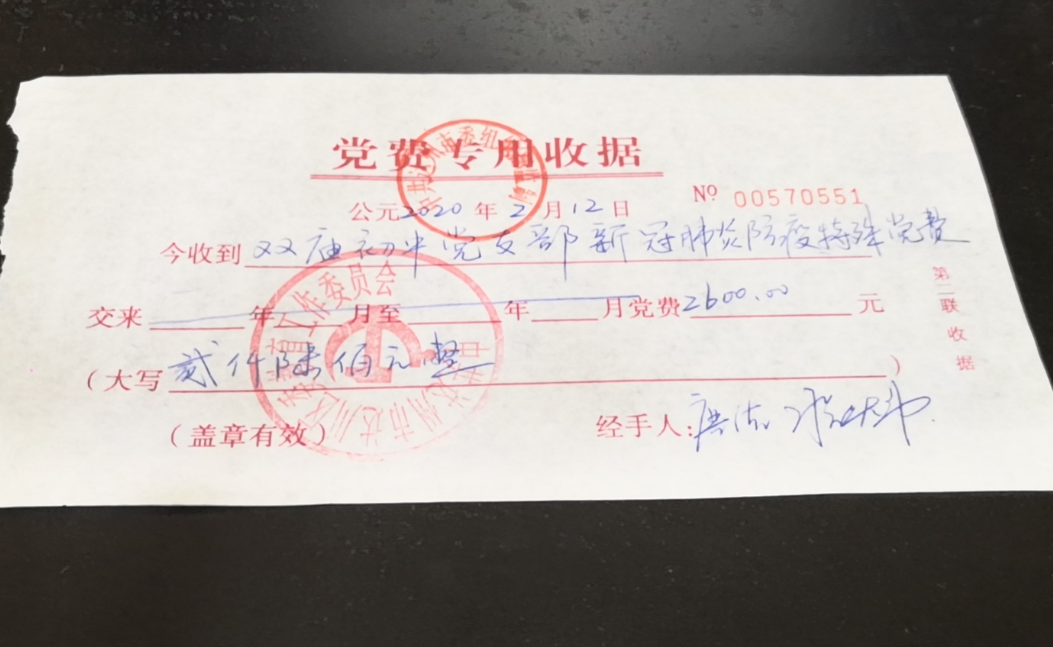 党费专用收据
№ 00570551
公元2020年2月12日
今收到 双庙初中党支部新冠肺炎防疫特殊党费
交来 年 月至 年 月党费2600.00元
(大写 贰仟陆佰元整)
(盖章有效) 经手人:
第二联 收据